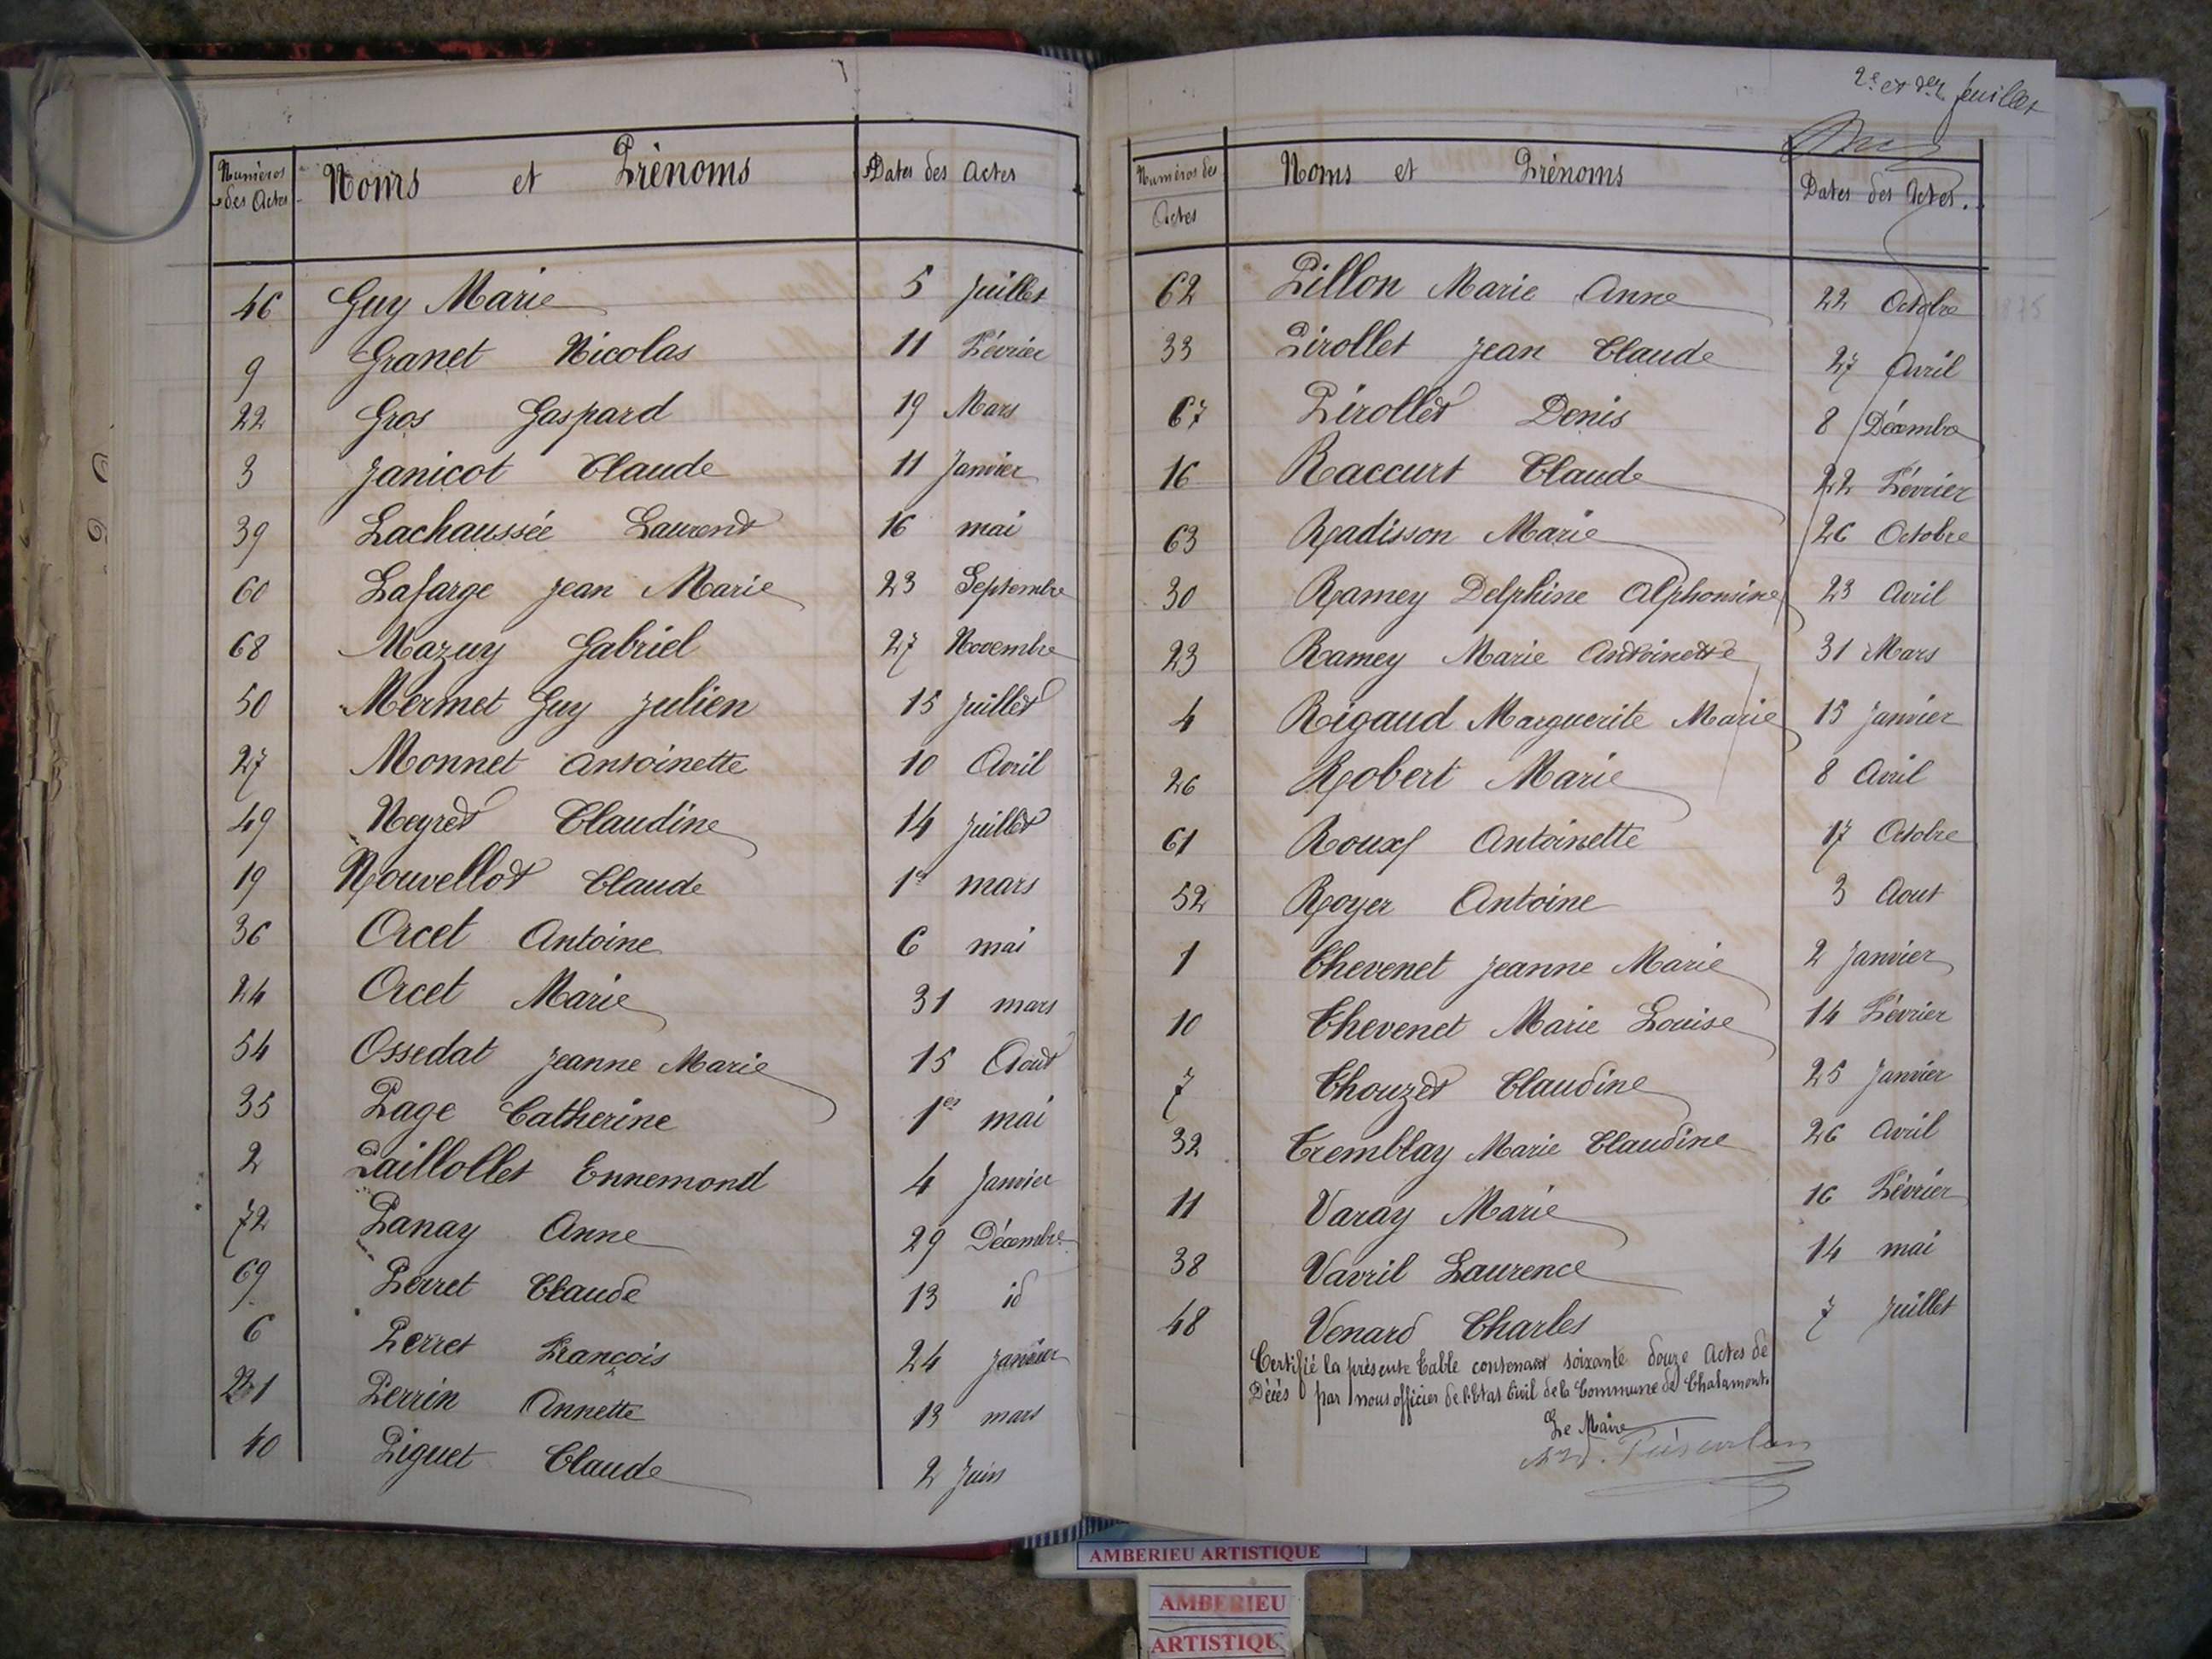 Numéros des Actes Noms et Prénoms Dates des Actes
46 Guy Marie 5 Juillet
9 Granet Nicolas 11 Février
22 Gros Gaspard 19 Mars
3 Janicot Claude 11 Janvier
39 Lachaussée Laurent 16 mai
60 Lafarge Jean Marie 23 Septembre
68 Mazuy Gabriel 27 Novembre
50 Mermet Guy Julien 15 Juillet
27 Monnet Antoinette 10 Avril
49 Neyret Claudine 14 Juillet
19 Nouvellot Claude 1er mars
36 Orcet Antoine 6 mai
24 Orcet Marie 31 mars
54 Ossedat Jeanne Marie 15 Aout
35 Page Catherine 1er mai
2 Paillollet Ennemond 4 Janvier
72 Panay Anne 29 Décembre
69 Perret Claude 13 id
6 Perret François 24 Janvier
21 Perrin Annette 13 mars
40 Piguet Claude 2 Juin
2e et der feuillet
Numéros des Actes Noms et Prénoms Dates des Actes.
62 Pillon Marie Anne 22 Octobre
33 Pirollet Jean Claude 27 Avril
67 Pirollet Denis 8 Décembre
16 Raccurt Claude 22 Février
63 Radisson Marie 26 Octobre
30 Ramey Delphine Alphonsine 23 Avril
23 Ramey Marie Antoinette 31 Mars
4 Rigaud Marguerite Marie 15 Janvier
26 Robert Marie 8 Avril
61 Roux Antoinette 17 Octobre
52 Royer Antoine 3 Aout
1 Thevenet Jeanne Marie 2 Janvier
10 Thevenet Marie Louise 14 Février
7 Thouzet Claudine 25 Janvier
32 Tremblay Marie Claudine 26 Avril
11 Varay Marie 16 Février
38 Vavril Laurence 14 mai
48 Venard Charles 7 Juillet
Certifié la présente Table contenant soixante douze Actes de
Décès par nous officier de l'Etat Civil de la Commune de Chalamont.
Le Maire
AMBERIEU ARTISTIQUE
AMBERIEU
ARTISTIQU